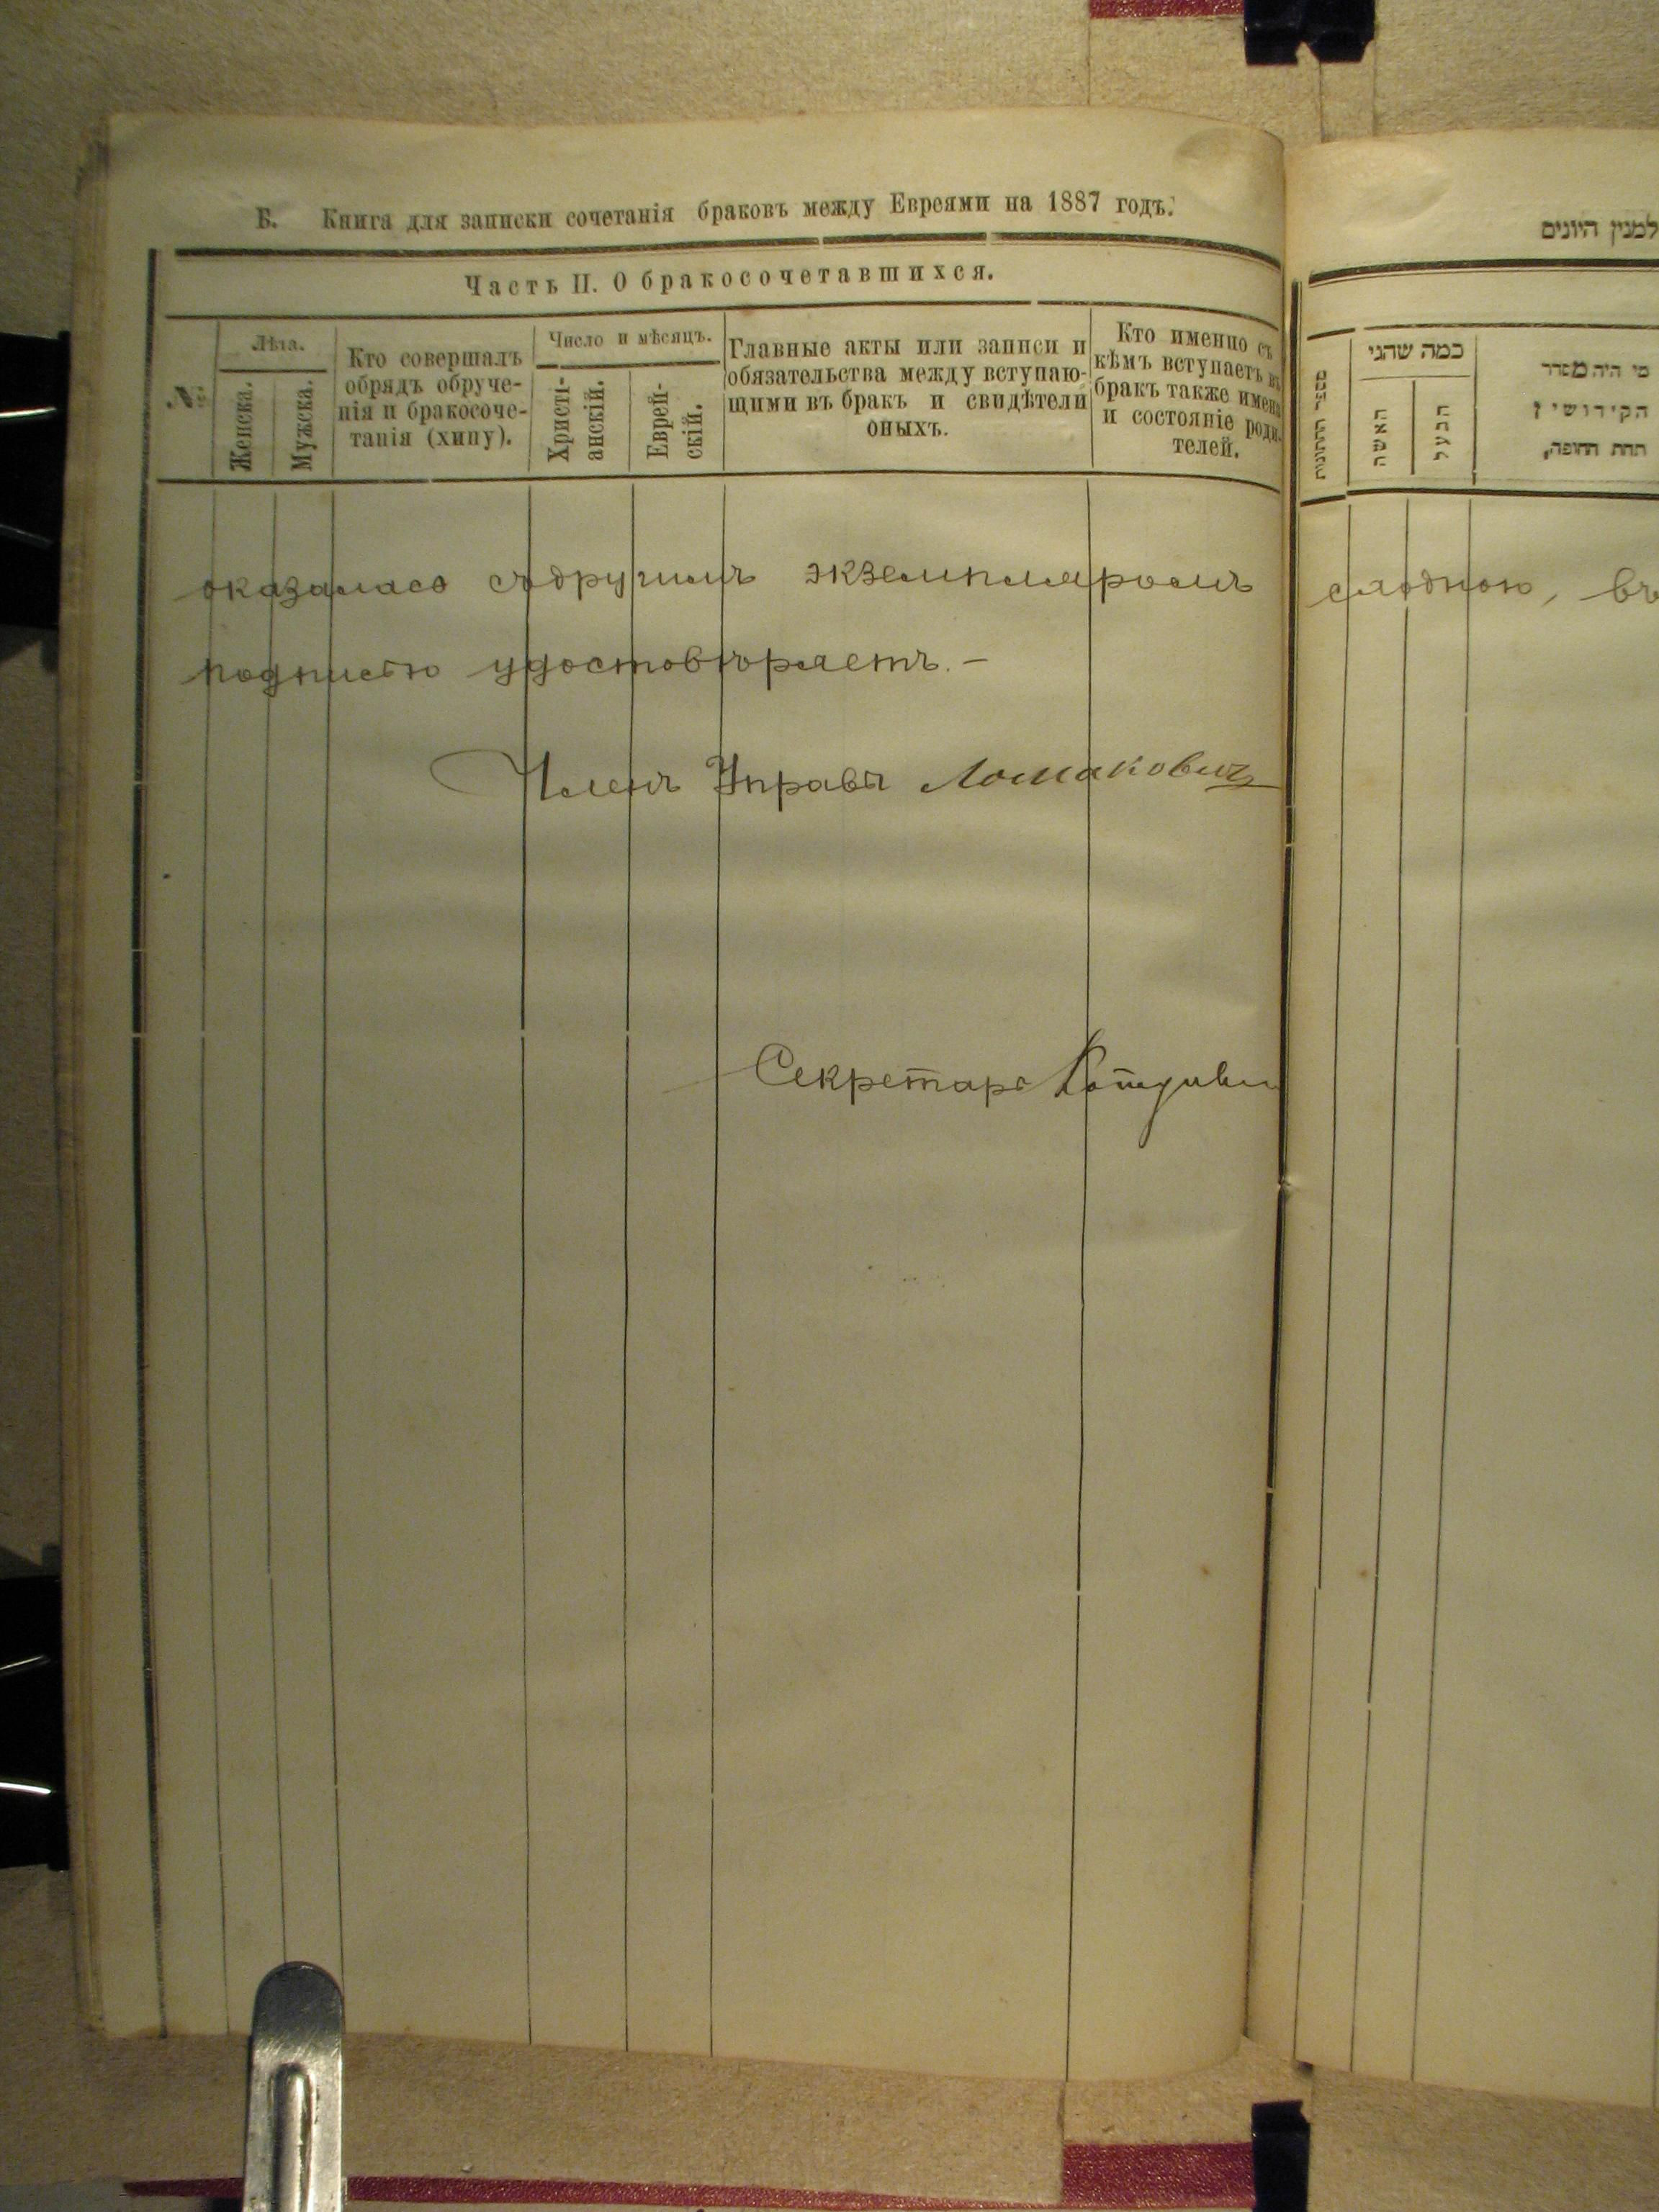 Б. Книга для записки сочетанія браковъ между Евреями на 1887 годъ.
Часть II. О бракосочетавшихся.
№
Лѣта.
Женска.
Мужска.
Кто совершалъ
обрядъ обруче-
нія и бракосоче-
танія (хипу).
Число и мѣсяцъ.
Христі-
анскій.
Еврей-
скій.
Главные акты или записи и
обязательства между вступаю-
щими въ бракъ и свидѣтели
оныхъ.
Кто именно съ
кѣмъ вступаетъ въ
бракъ также имена
и состояніе роди-
телей.
оказалась съ другимъ экземпляромъ
подписью удостовѣряетъ. —
Членъ Управы Ломакович
Секретарь
למנין היונים
מספר החתונות
כמה שהגי
האשה
הבעל
מי היה מסדר
הקידושין
תחת החופה,
въ